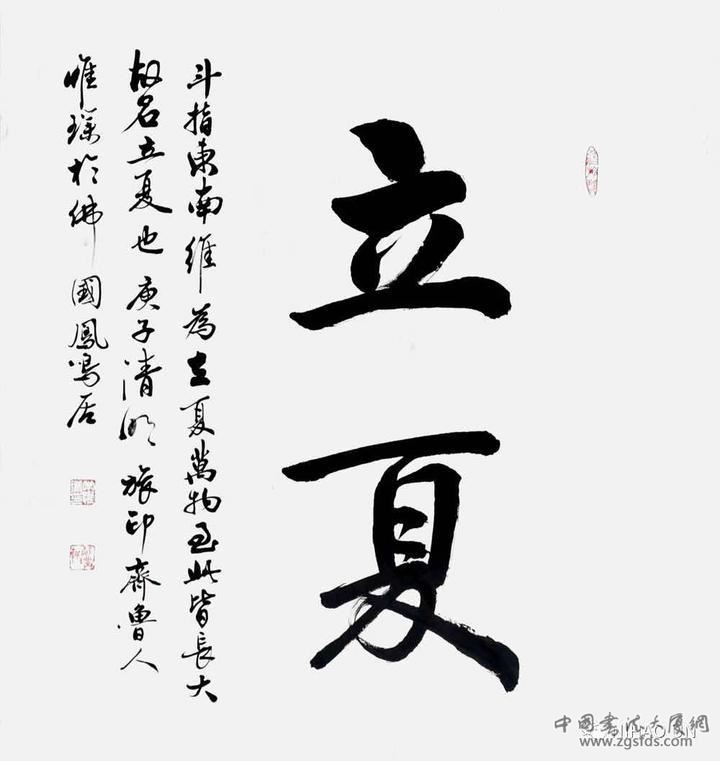 立夏
斗指東南維為立夏萬物至此皆長大
故名立夏也庚子清明旅印齊魯人
惟瑧於佛國鳳鳴居
中國書法大厦網
www.zgsfds.com